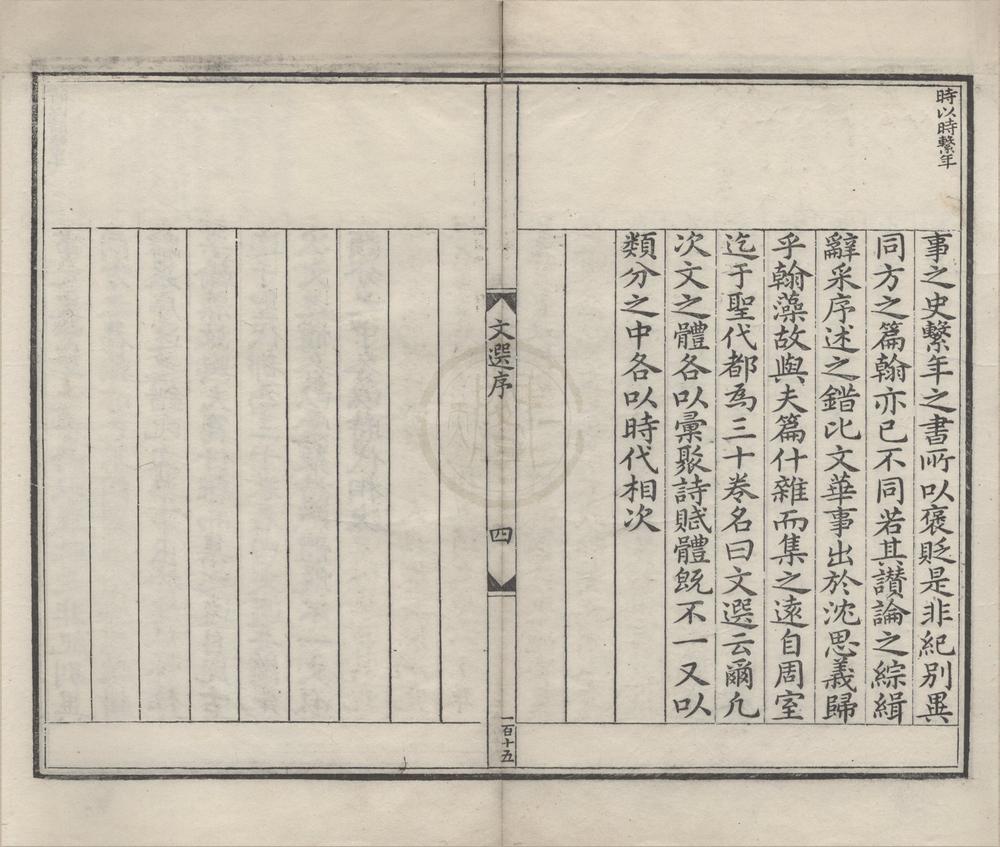 時以時繫年
事之史繫年之書所以褒貶是非紀別異
同方之篇翰亦已不同若其讃論之綜緝
辭采序述之錯比文華事出於沈思義歸
乎翰藻故與夫篇什雜而集之遠自周室
迄于聖代都為三十卷名曰文選云爾凡
次文之體各以彙聚詩賦體旣不一又以
類分之中各以時代相次
文選序
四
一百十五